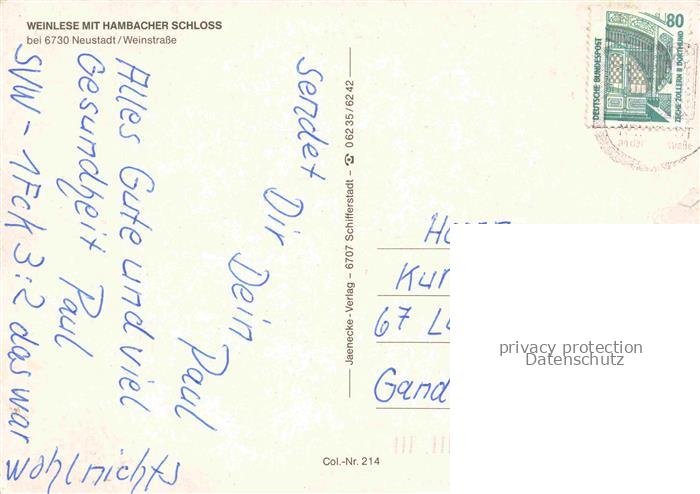 WEINLESE MIT HAMBACHER SCHLOSS
bei 6730 Neustadt/Weinstraße
sendet
Dir Dein
Paul
Alles Gute und viel
Gesundheit Paul
SVW - 1 Fck 3:2 das war
wohl nichts
Jaenecke-Verlag – 6707 Schifferstadt – ✆ 06235/6242
80
DEUTSCHE BUNDESPOST
ZECHE ZOLLERN II DORTMUND
Kur
67 Lu
Gand
privacy protection
Datenschutz
Col.-Nr. 214